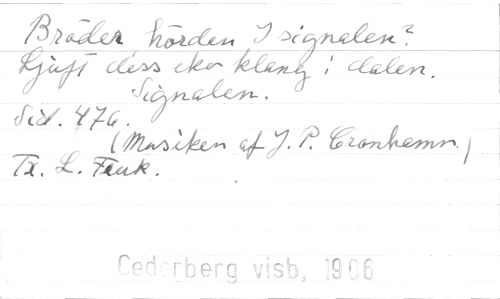 Bröder hörden I signalen?
Ljuft dess eko klang i dalen.
Signalen.
Sid. 476.
(Musiken af J. P. Cronhamn.)
Tr. L.
Cederberg visb, 1906